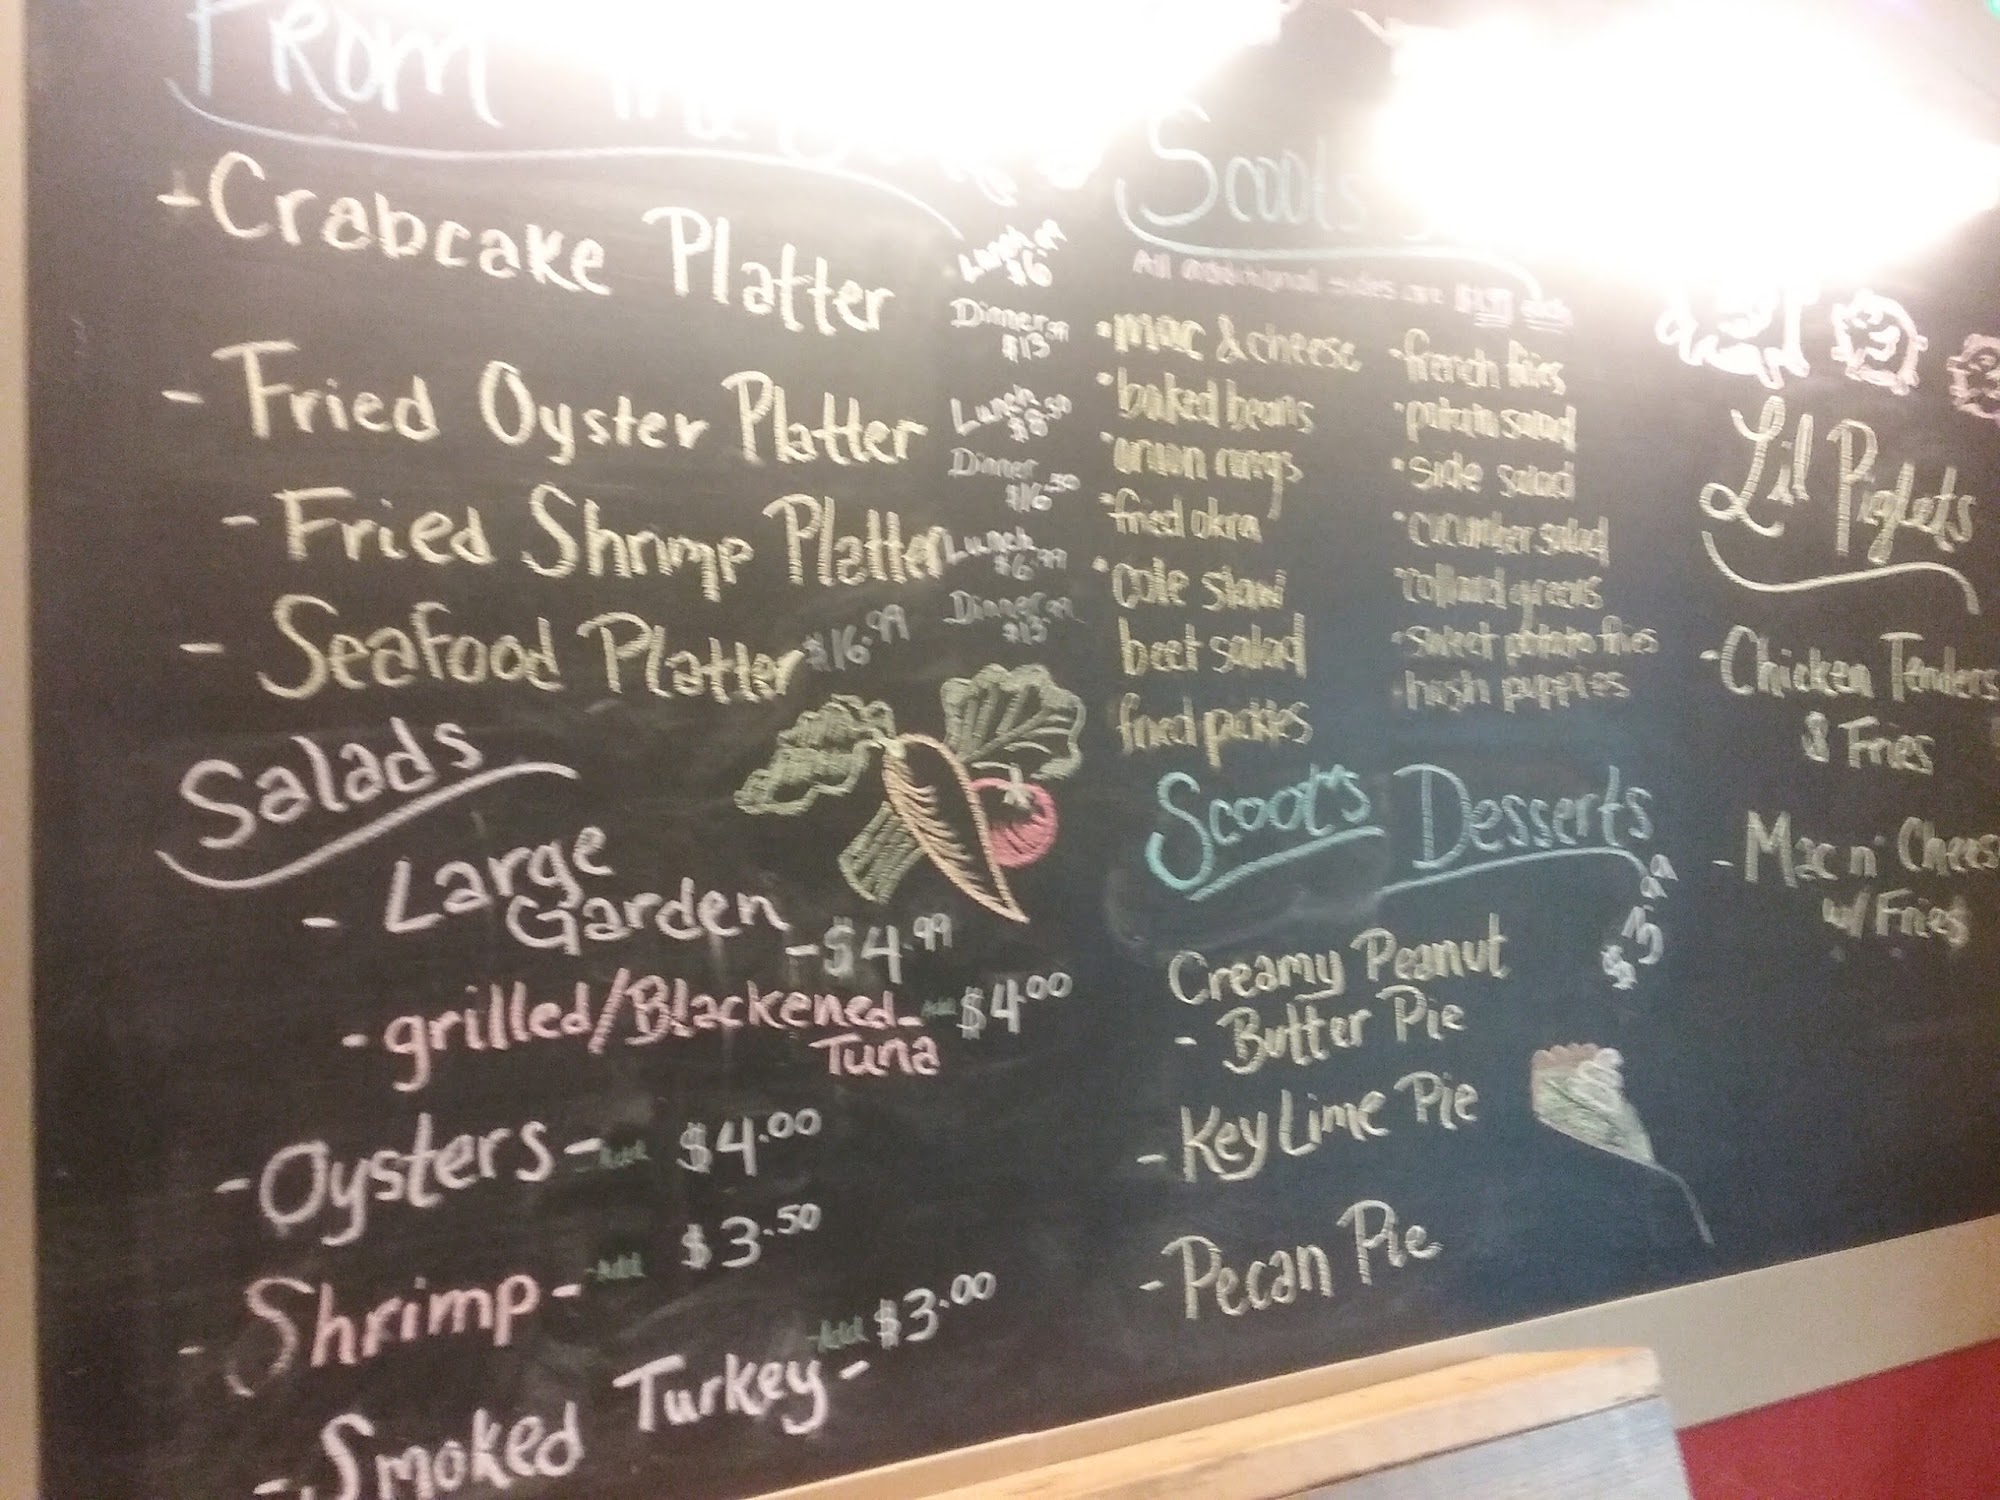 From The
- Crabcake Platter
Lunch
$6.99
Dinner
$13.99
- Fried Oyster Platter
Lunch
$8.50
Dinner
$16.50
- Fried Shrimp Platter
Lunch
$6.99
Dinner
$13.99
- Seafood Platter $16.99
Salads
- Large
Garden
- $4.99
- grilled/Blackened - Add $4.00
Tuna
- Oysters - Add $4.00
- Shrimp - Add $3.50
- Smoked Turkey - Add $3.00
Scoots
All additional sides are each
• mac & cheese
• baked beans
• onion rings
• fried okra
• cole slaw
beet salad
fried pickles
• french fries
• potato salad
• side salad
• cucumber salad
• collard greens
• sweet potato fries
hush puppies
Scoot's Desserts
$3.99
Creamy Peanut
- Butter Pie
- Key Lime Pie
- Pecan Pie
Lil Piglets
- Chicken Tenders
& Fries
- Mac n' Cheese
w/ Fries